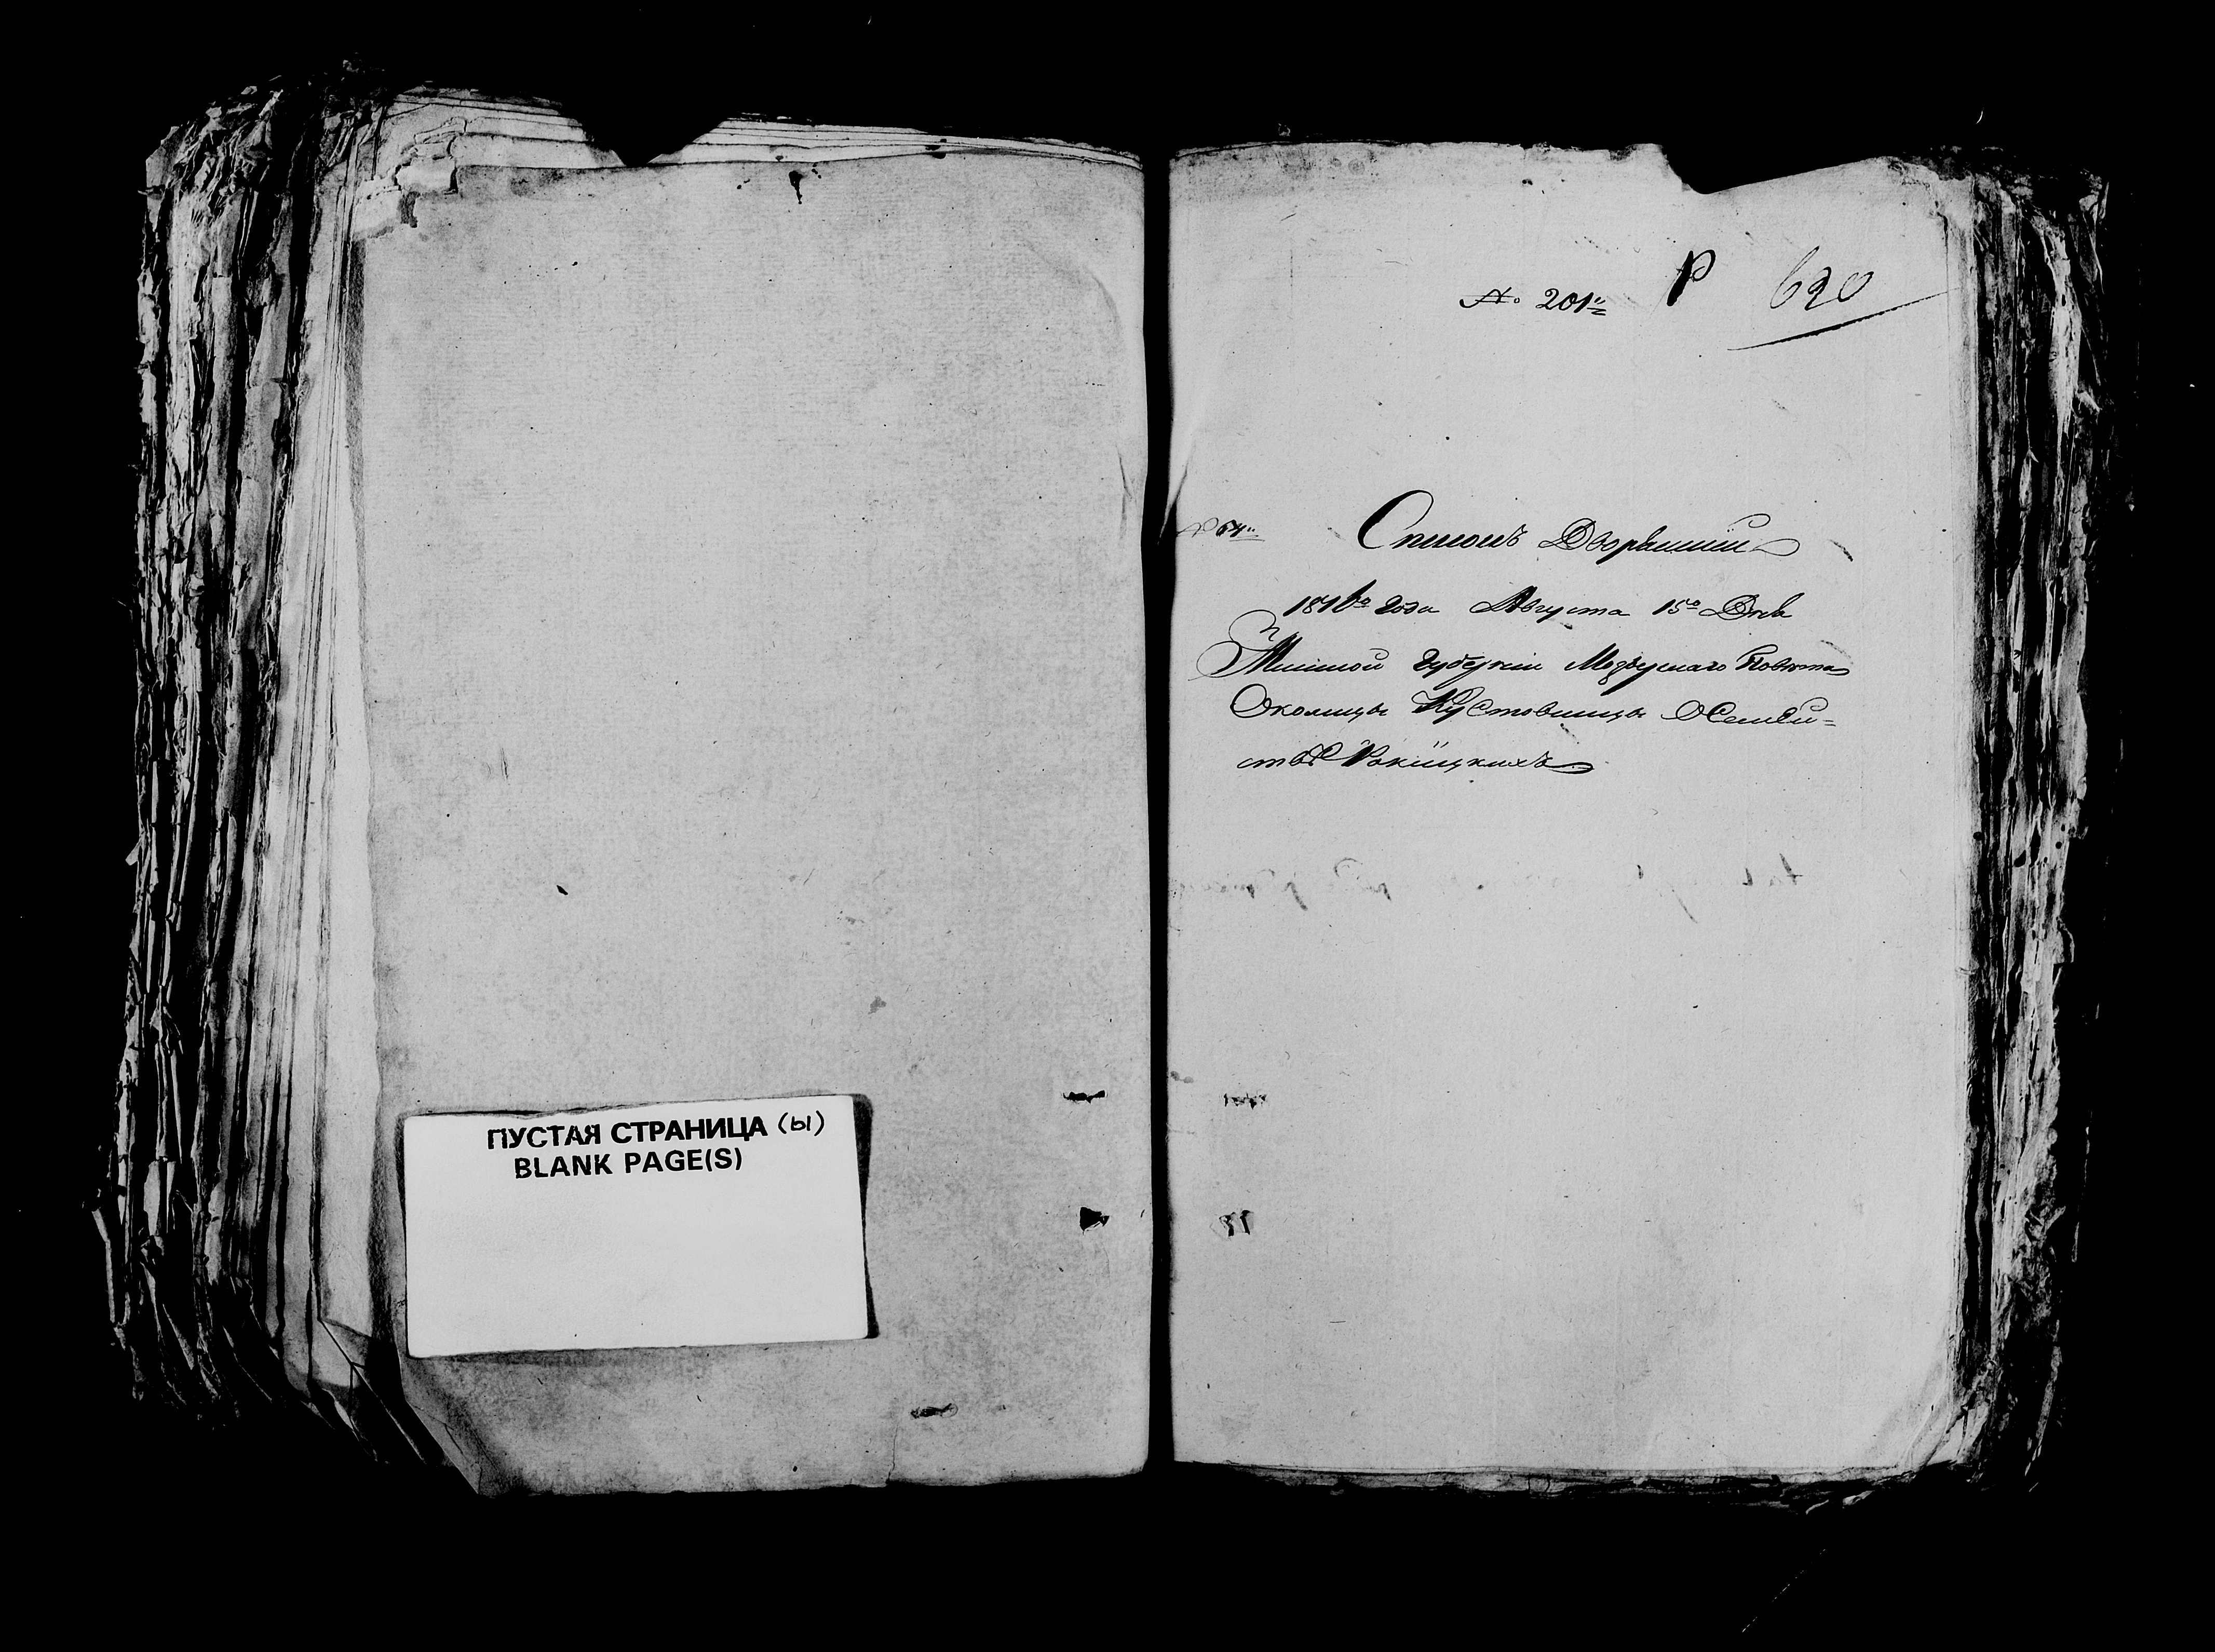 ПУСТАЯ СТРАНИЦА (ы)
BLANK PAGE(S)
№ 201 Р 620
№ 64
Списокъ Дворянскій
1816го Года Августа 15го Дня
Минской Губерніи Мозырскаго Повѣта
Околицы Кустовницы О Семей=
ствѣ Рокицкихъ